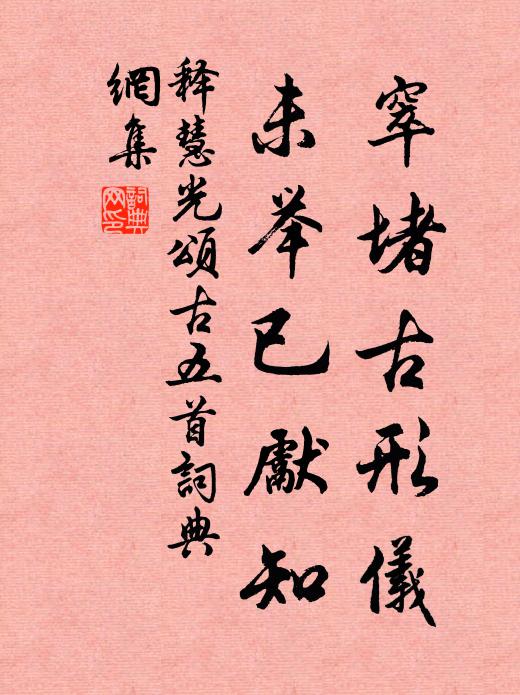 窣堵古形儀
未举已獻知
释慧光頌古五首詞典
網集
詞典
网印